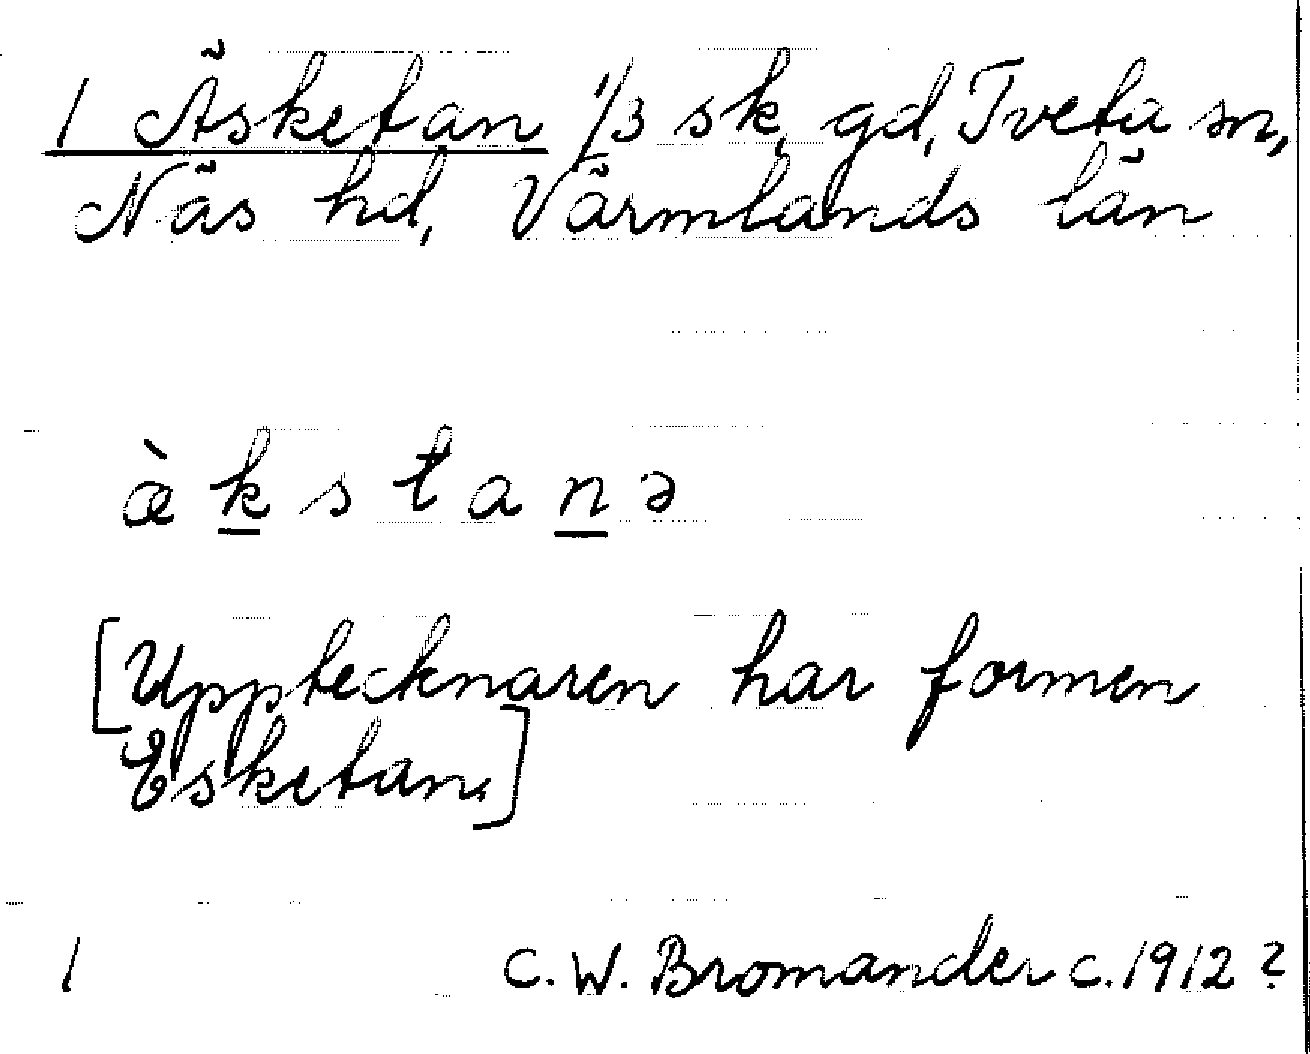 1 Äsketan 1/3 sk, gd, Tveta sn,
Näs hd, Värmlands län
æ̀ k̲ s t a n̲ ə
[Upptecknaren har formen
Esketan.]
1 C. W. Bromander c. 1912?